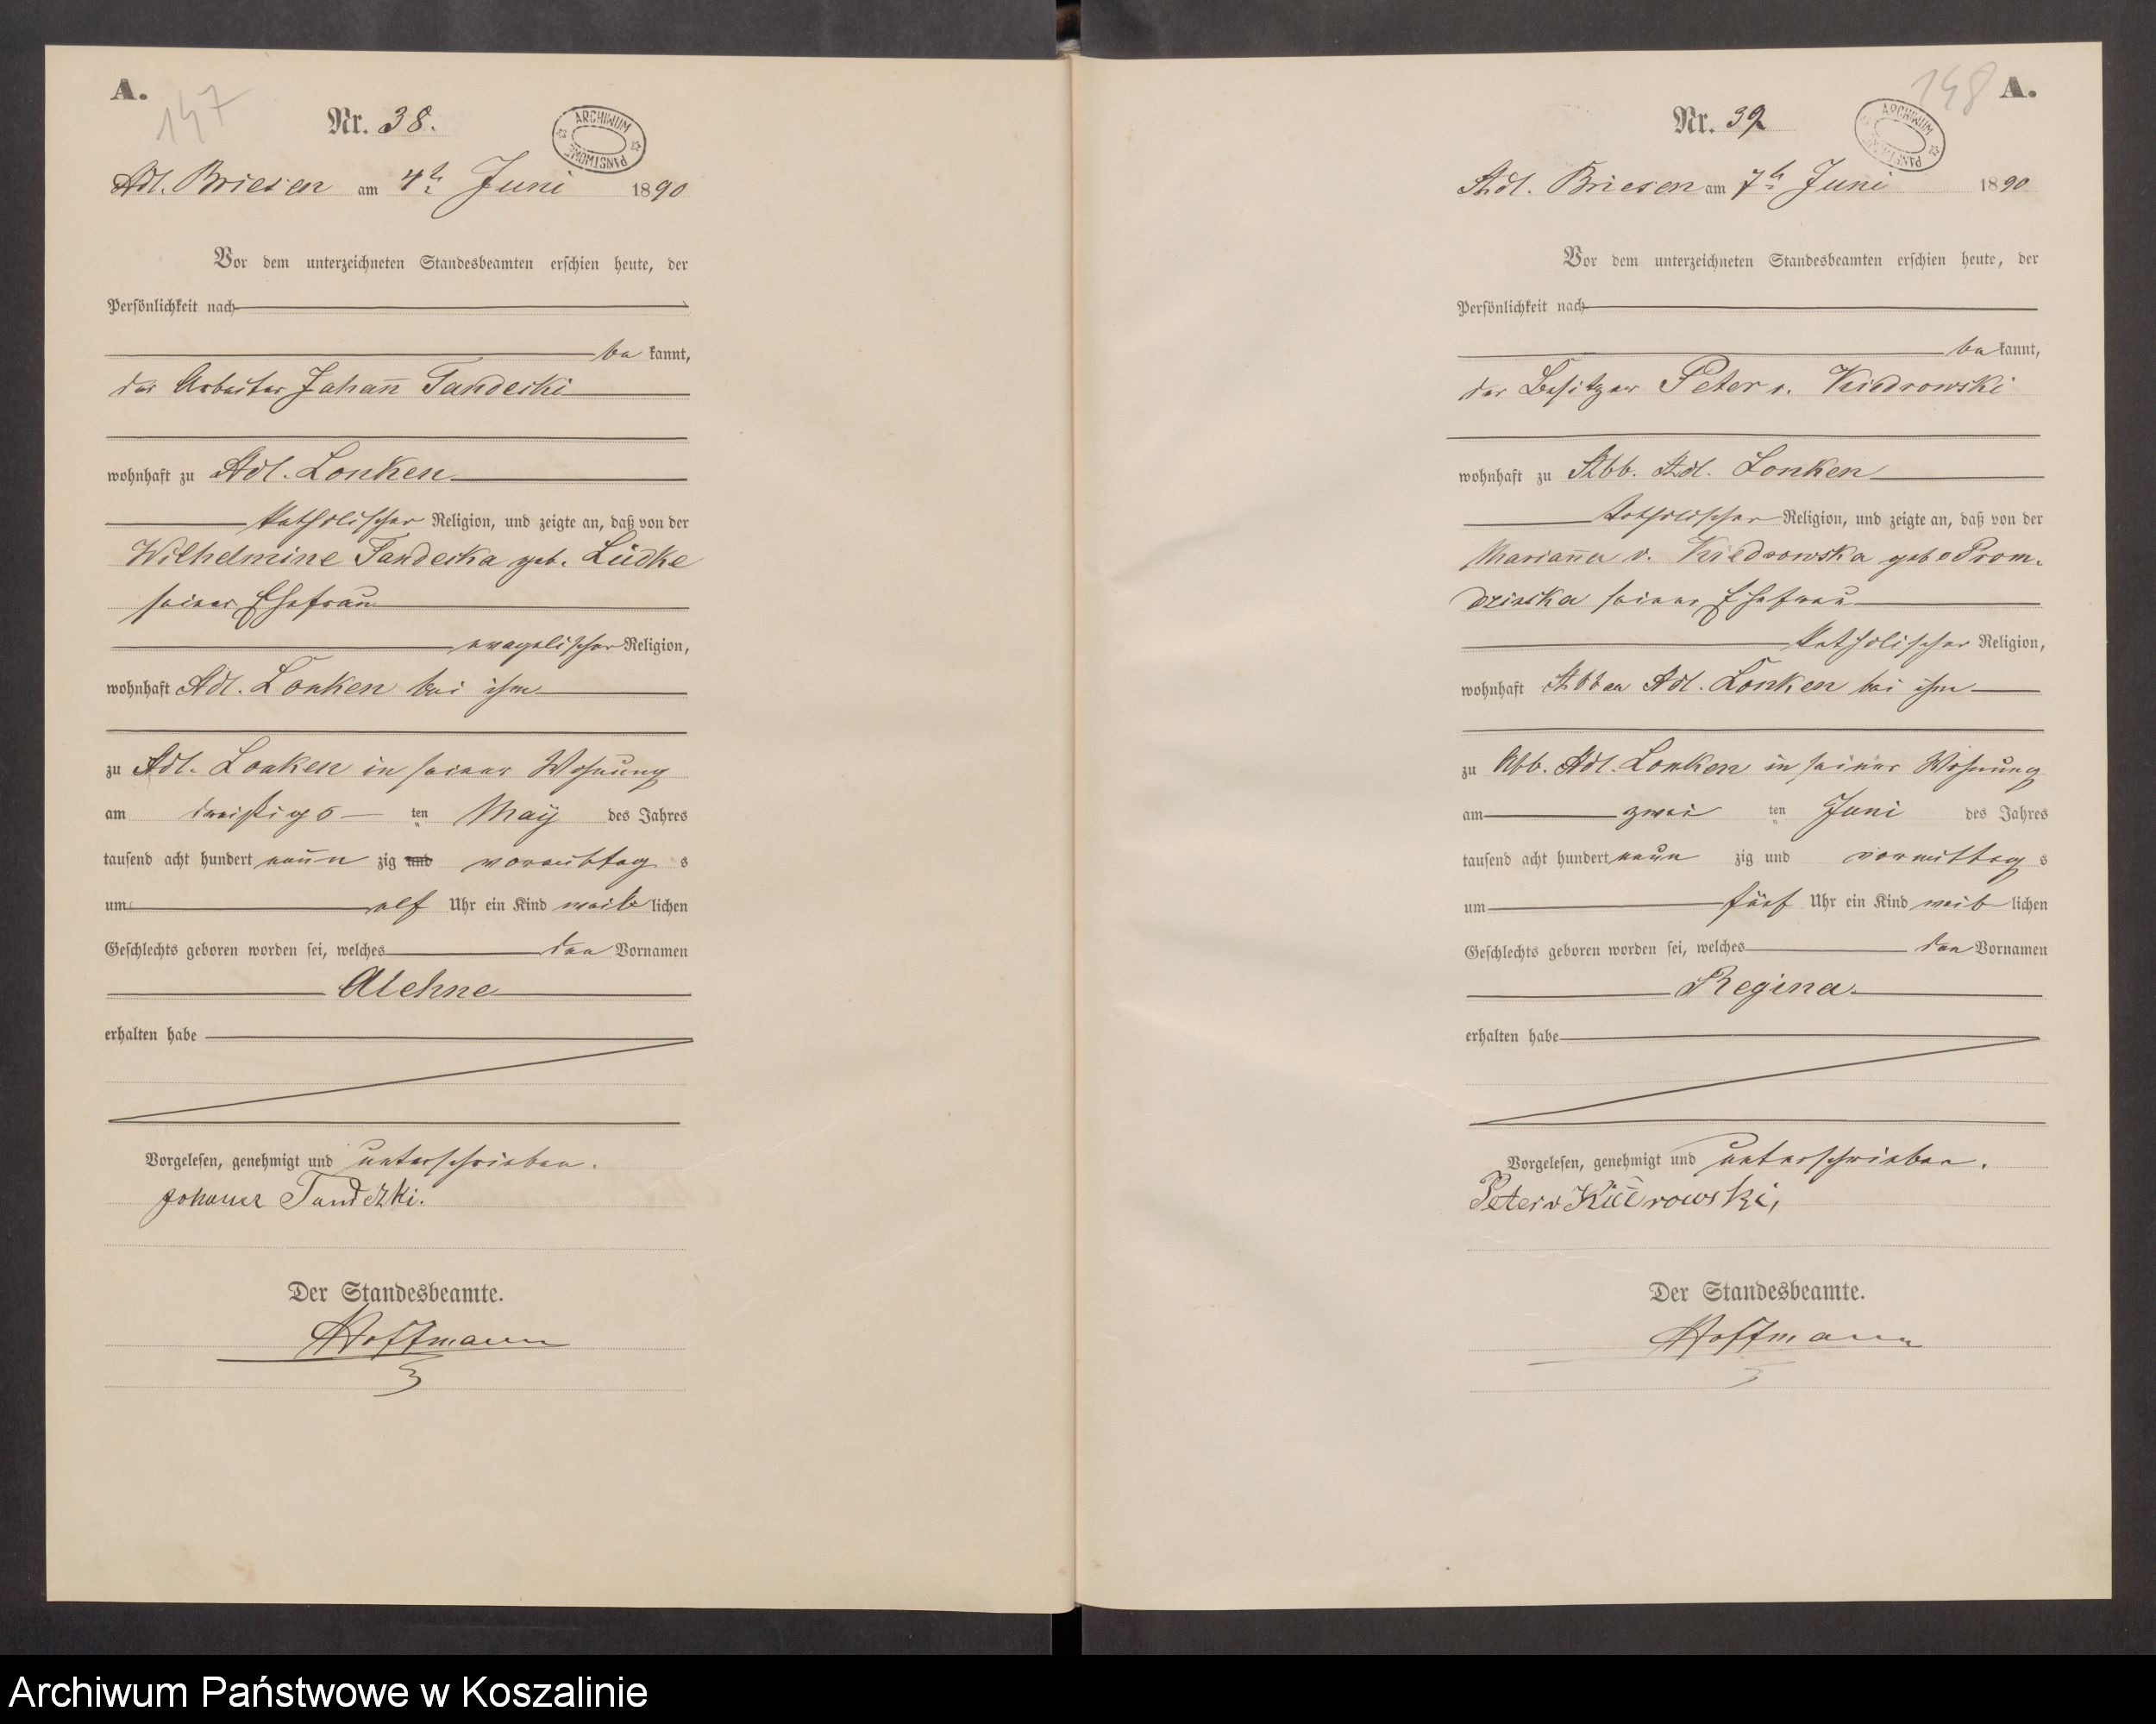 A.
147
Nr. 38.
ARCHIWUM PAŃSTWOWE
Adl. Briesen am 4ten Juni 1890
Vor dem unterzeichneten Standesbeamten erschien heute, der
Persönlichkeit nach
be kannt,
der Arbeiter Johann Tandecki
wohnhaft zu Adl. Lonken
katholischer Religion, und zeigte an, daß von der
Wilhelmine Tandecka geb. Lüdke
seiner Ehefrau
evangelischer Religion,
wohnhaft Adl. Lonken bei ihm
zu Adl. Lonken in seiner Wohnung
am dreißigs ten May des Jahres
tausend acht hundert neun zig und vormittag s
um elf Uhr ein Kind weib lichen
Geschlechts geboren worden sei, welches den Vornamen
erhalten habe
Vorgelesen, genehmigt und unterschrieben.
Johann Tandezki.
Der Standesbeamte.
Hoffmann
148 A.
Nr. 39
ARCHIWUM PAŃSTWOWE
Adl. Briesen am 7ten Juni 1890
Vor dem unterzeichneten Standesbeamten erschien heute, der
Persönlichkeit nach
be kannt,
der Besitzer Peter v. Kiedrowski
wohnhaft zu Abb. Adl. Lonken
katholischer Religion, und zeigte an, daß von der
Marianna v. Kiedrowska geb
seiner Ehefrau
katholischer Religion,
wohnhaft Abbau Adl. Lonken bei ihm
zu Abb. Adl. Lonken in seiner Wohnung
am zwei ten Juni des Jahres
tausend acht hundert neun zig und vormittag s
um fünf Uhr ein Kind weib lichen
Geschlechts geboren worden sei, welches den Vornamen
Regina
erhalten habe
Vorgelesen, genehmigt und unterschrieben.
Peter v Kiedrowski,
Der Standesbeamte.
Hoffmann
Archiwum Państwowe w Koszalinie